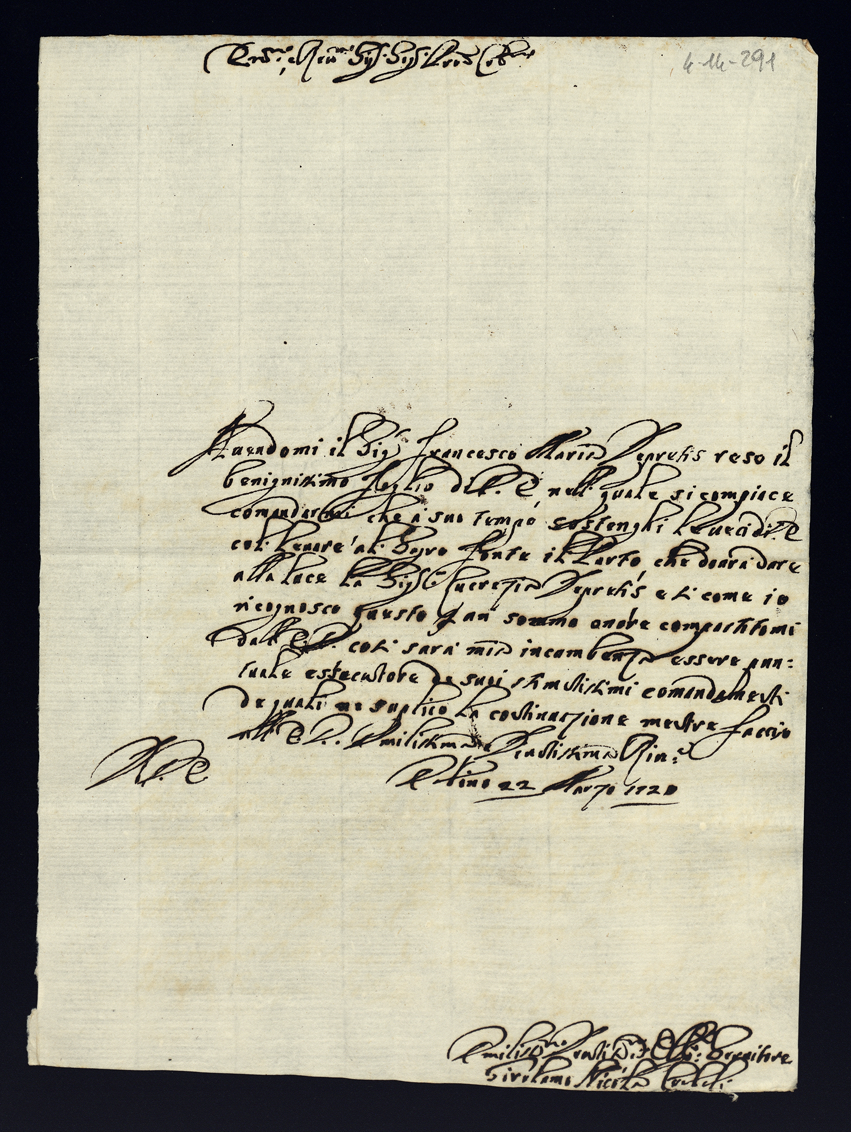 Em.mo, e Rev.mo Sig.r Sig.r Pron Col.mo
4-14-291
Avendomi il Sig.r Francesco Maria Depretis reso il
benignissimo foglio di V. E. nell quale si compiace
comandarmi che a suo tempo sostenghi le veci di V. E.
così levare al Sagro fonte il Parto, che dovrà dare
alla luce la Sig.ra Lucrezia Depretis e si come io
ricognosco questo p un sommo onore compartitomi
dall E. V. così sarà mia incumbenza essere pun=
tuale essecutore de suoi stimatissimi comandamenti
de quali ne suplico la continuazione mentre faccio
all E. V. Umilissima Devotissima Riv.a
V. E.
22 Marzo 1720
Umiliss.mo Devotiss.mo Obl.mo Servitore
Girolamo Nicola